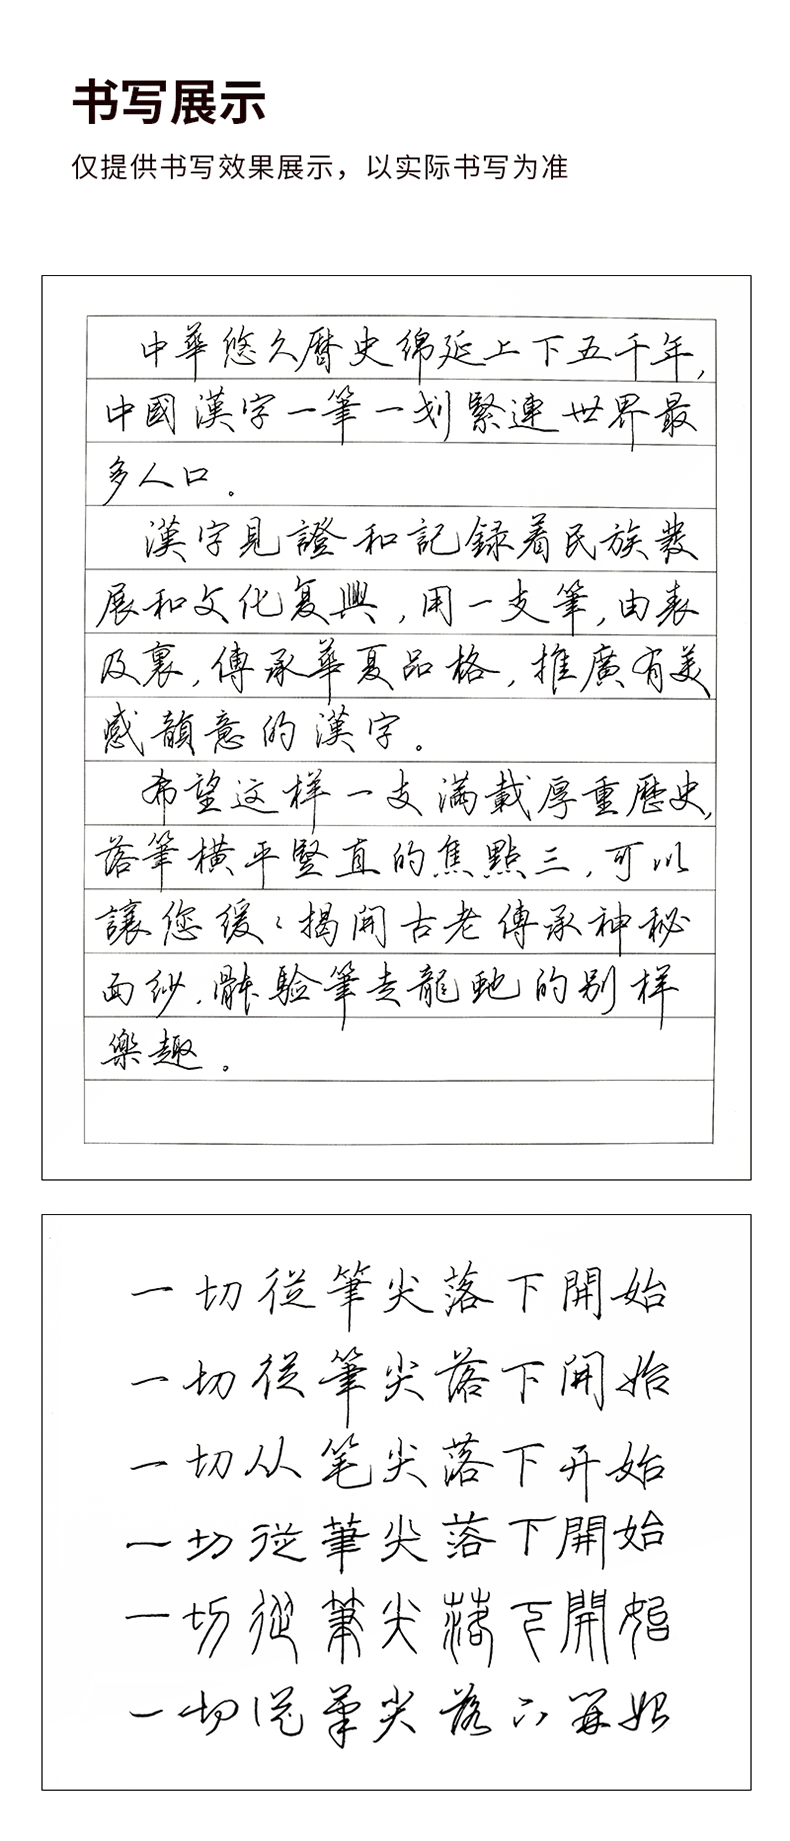 书写展示
仅提供书写效果展示，以实际书写为准
中華悠久曆史绵延上下五千年，
中國漢字一筆一划緊連世界最
多人口。
漢字見證和記録着民族發
展和文化复興，用一支筆，由表
及裏，傳承華夏品格，推廣有美
感韻意的漢字。
希望这样一支满載厚重歷史，
落筆横平豎直的焦點三，可以
讓您缓々揭開古老傳承神秘
面纱，體驗筆走龍虵的别样
樂趣。
一切從筆尖落下開始
一切從筆尖落下開始
一切从笔尖落下开始
一切從筆尖落下開始
一切從筆尖落下開始
一切從筆尖落下開始